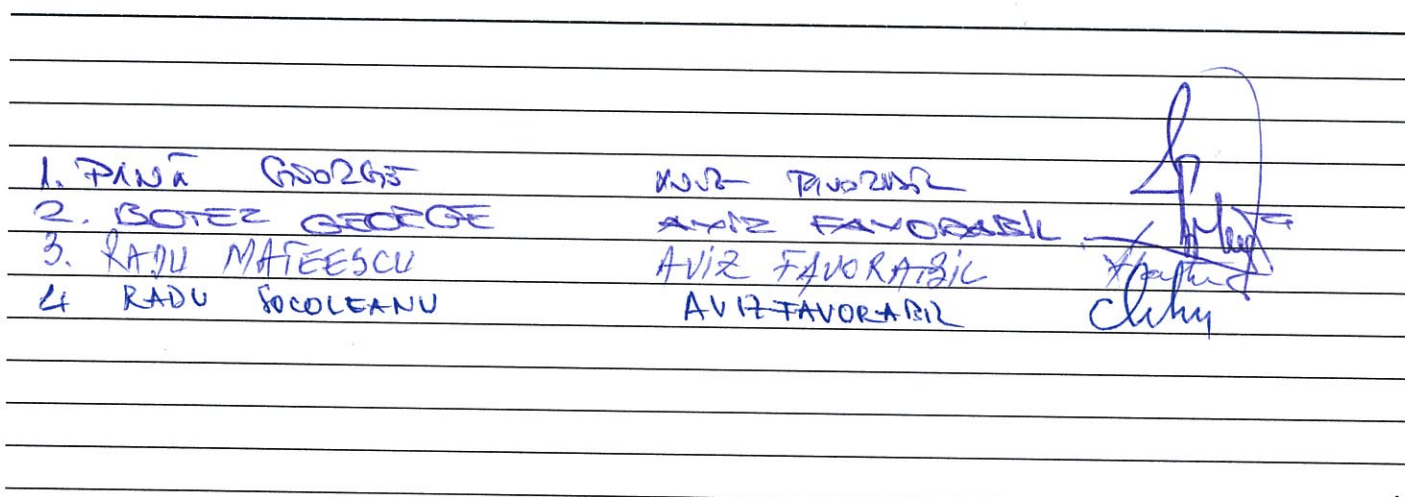 1. PANĂ GEORGE AVIZ FAVORABIL
2. BOTEZ GEORGE AVIZ FAVORABIL
3. RADU MATEESCU AVIZ FAVORABIL
4 RADU SOCOLEANU AVIZ FAVORABIL